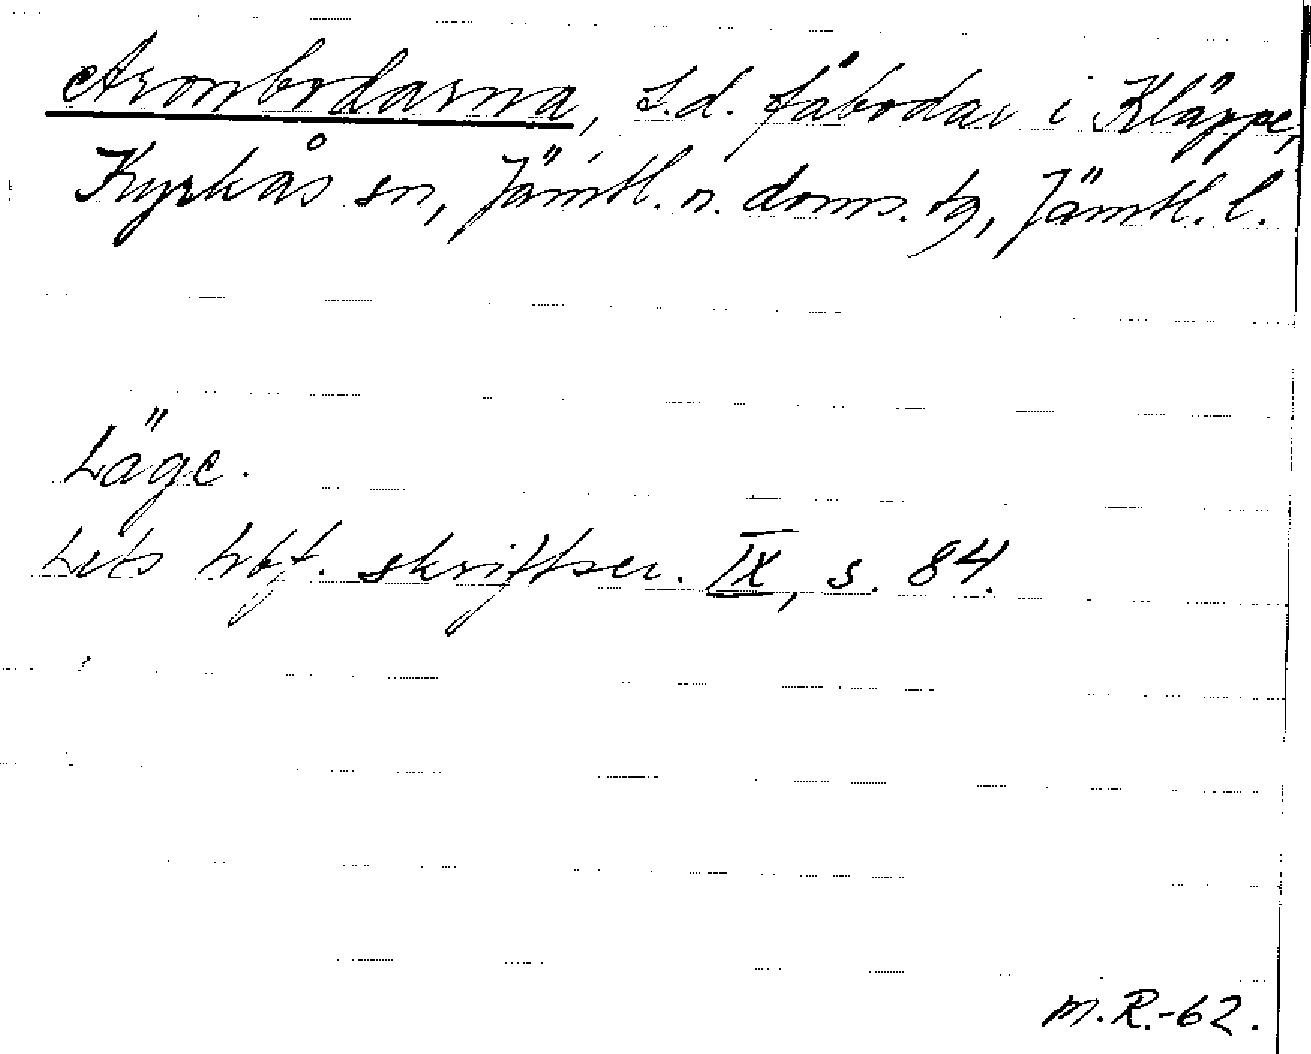 Aronbodarna, f.d. fäbodar i Kläppe,
Kyrkås sn, Jämtl. n. doms. tg, Jämtl. l.
Läge.
Lits hbf. skriftser. IX, s. 84.
M.R.-62.